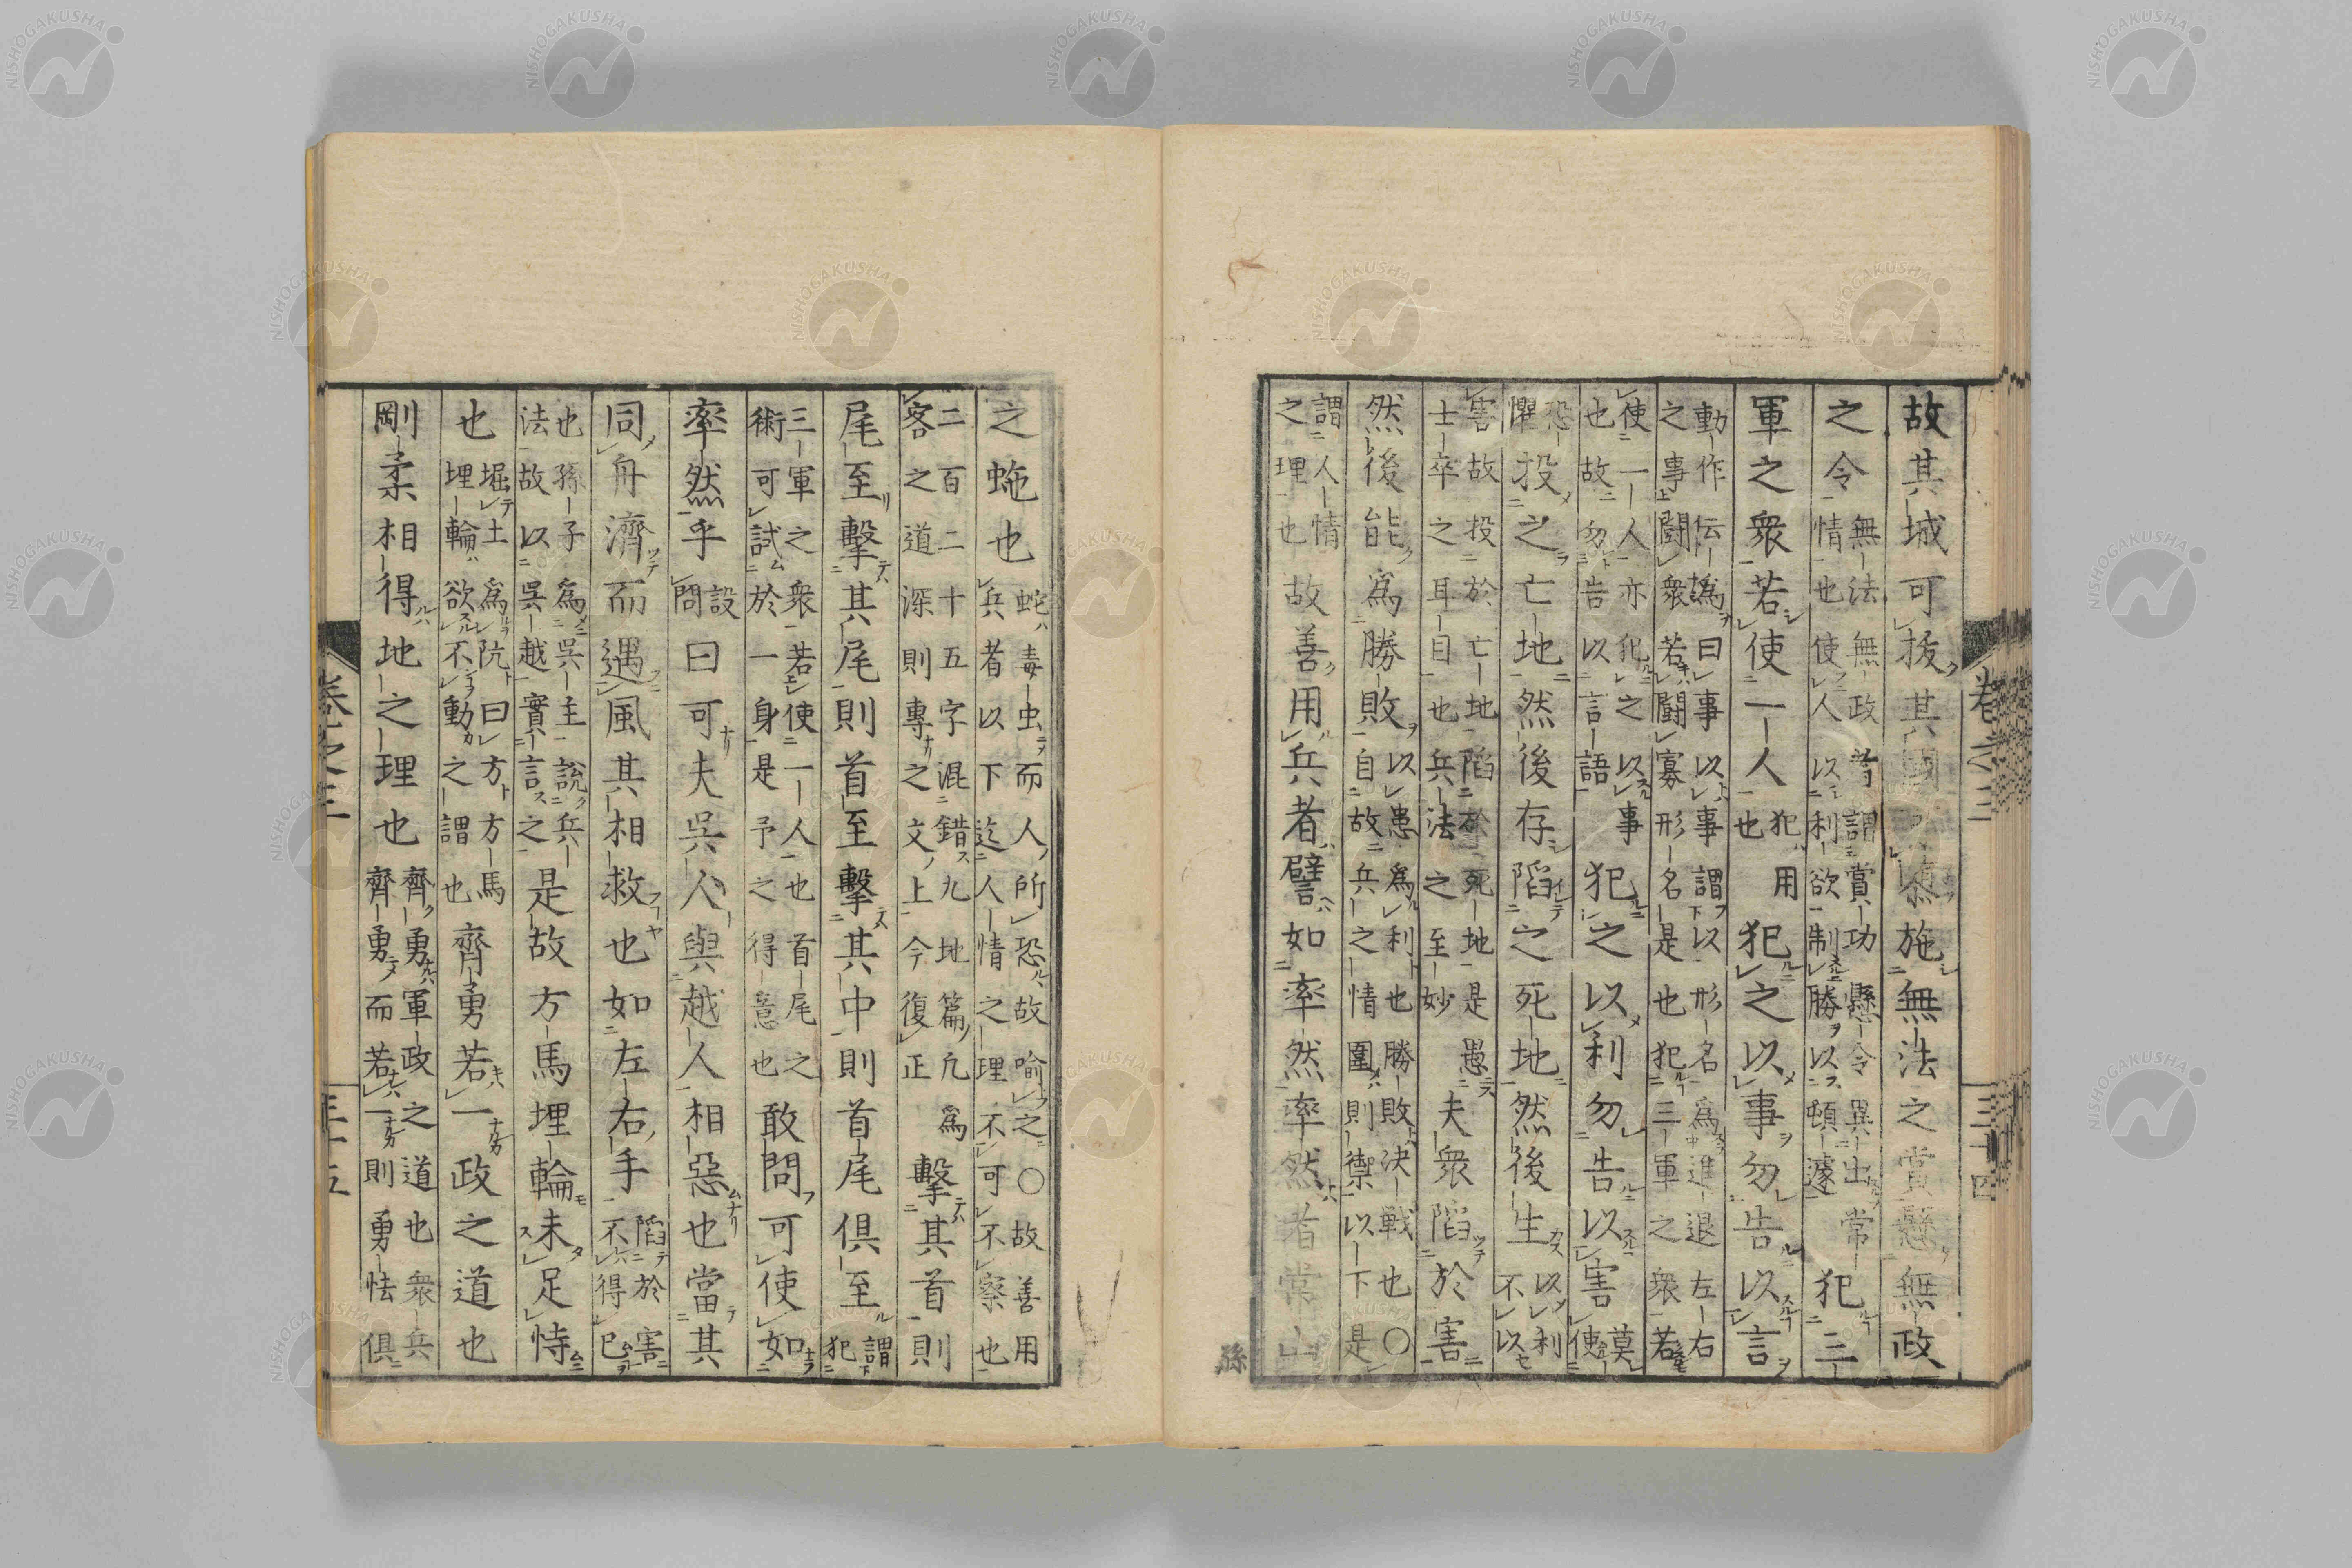 故其城可拔其國可隳施無法之賞懸無政
之令無法無政者謂賞功懸令異出常情也使人以利欲制勝以頓遽犯三
軍之衆若使一人犯用也犯之以事勿告以言
動作伝為曰事以事謂以形名為進退左右之事闘衆若闘寡形名是也犯三軍之衆若
使一人亦犯之以事也故勿告以言語犯之以利勿告以害莫使
恐懼投之亡地然後存陷之死地然後生以利不以
害故投於亡地陷於死地是愚士卒之耳目也兵法之至妙夫衆陷於害
然後能爲勝敗以患爲利也勝敗決戦也〇自故兵之情圍則禦以下是
謂人情之理也故善用兵者譬如率然率然者常山
孫
卷之三
三十四
之虵也蛇毒虫而人所恐故喻之〇故善用兵者以下迄人情之理不可不察也
二百二十五字混錯九地篇凢爲客之道深則專之文上今復正擊其首則
尾至擊其尾則首至擊其中則首尾俱至謂犯
三軍之衆若使一人也首尾之術可試於一身是予之得意也敢問可使如
率然乎設問曰可夫吳人與越人相惡也當其
同舟濟而遇風其相救也如左右手陷於害不得已
也孫子爲吳主說兵法故以吳越實言之是故方馬埋輪未足恃
也堀土爲阬曰方方馬埋輪欲不動之謂也齊勇若一政之道也
剛柔相得地之理也齊勇軍政之道也衆兵齊勇而若一則勇怯俱
卷之三
三十五
NISHOGAKUSHA